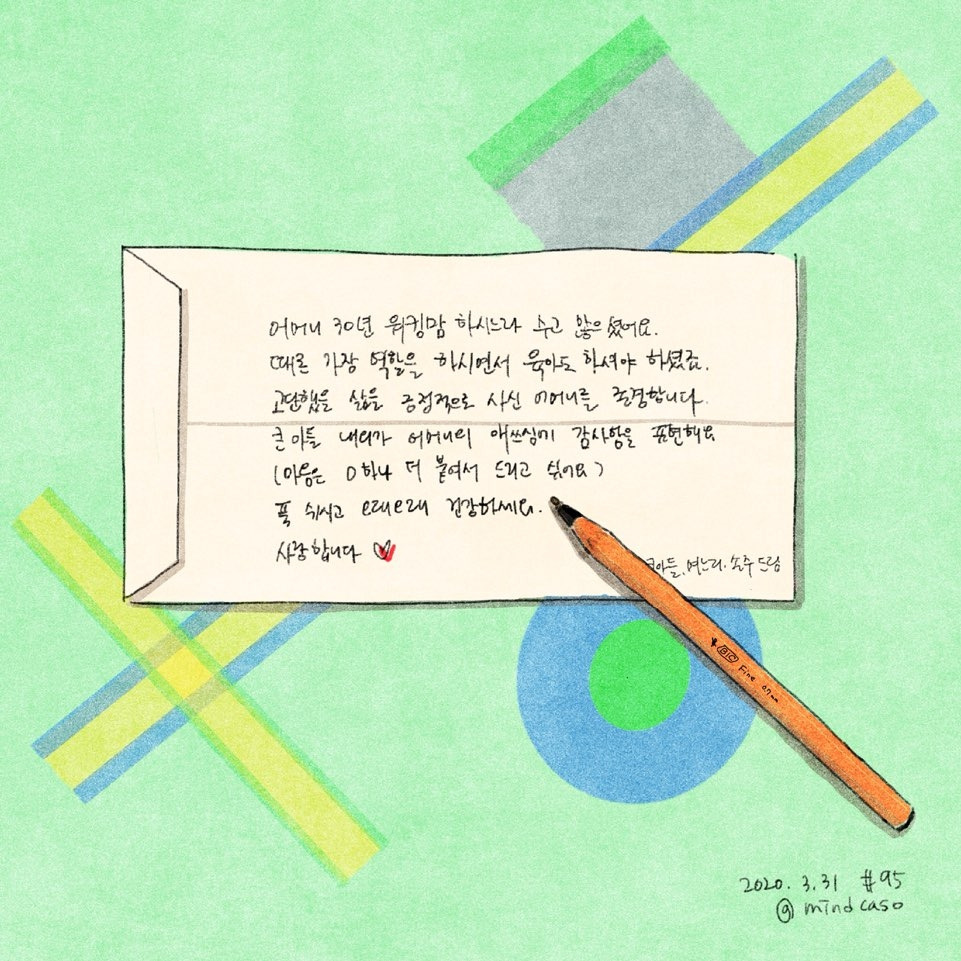 어머니 30년 워킹맘 하시느라 수고 많으셨어요.
때로 가장 역할을 하시면서 육아도 하셔야 하셨죠.
고단했을 삶을 긍정적으로 사신 어머니를 존경합니다.
큰아들 내외가 어머니의 애쓰심에 감사함을 표현해요
(마음은 0하나 더 붙여서 드리고 싶어요)
푹 쉬시고 오래오래 건강하세요.
사랑합니다
큰아들, 며느리. 손주 드림
BIC Fine 0.7mm
2020. 3. 31 #95
@ mindcaso